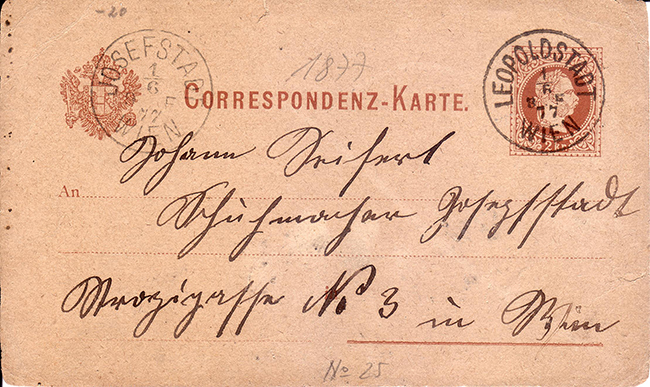 -20
1877
JOSEFSTADT
1
6
E
77
WIEN
CORRESPONDENZ-KARTE.
LEOPOLDSTADT
1
6
8 E
77
WIEN
Johann Seifert
An
Schuhmacher Josefsstadt
Strozzigasse No 3 in Wien
No 25